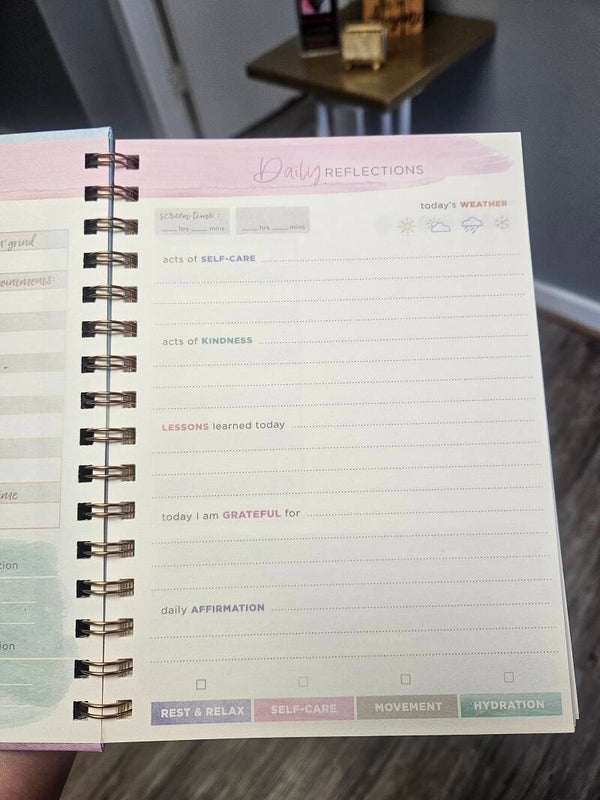 Daily REFLECTIONS
today's WEATHER
screen time:
hrs mins
hrs mins
acts of SELF-CARE
acts of KINDNESS
LESSONS learned today
today I am GRATEFUL for
daily AFFIRMATION
REST & RELAX
SELF-CARE
MOVEMENT
HYDRATION
grind